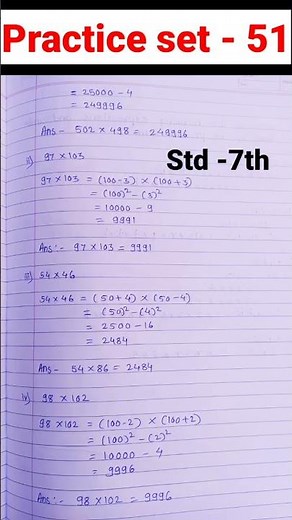 Practice set - 51
= 25000 - 4
= 249996
Ans - 502 × 498 = 249996
Std -7th
ii) 97 × 103
97 × 103 = (100-3) × (100+3)
= (100)² - (3)²
= 10000 - 9
= 9991
Ans:- 97 × 103 = 9991
iii) 54 × 46
54 × 46 = (50+4) × (50-4)
= (50)² - (4)²
= 2500 - 16
= 2484
Ans - 54 × 86 = 2484
iv) 98 × 102
98 × 102 = (100-2) × (100+2)
= (100)² - (2)²
= 10000 - 4
= 9996
Ans:- 98 × 102 = 9996